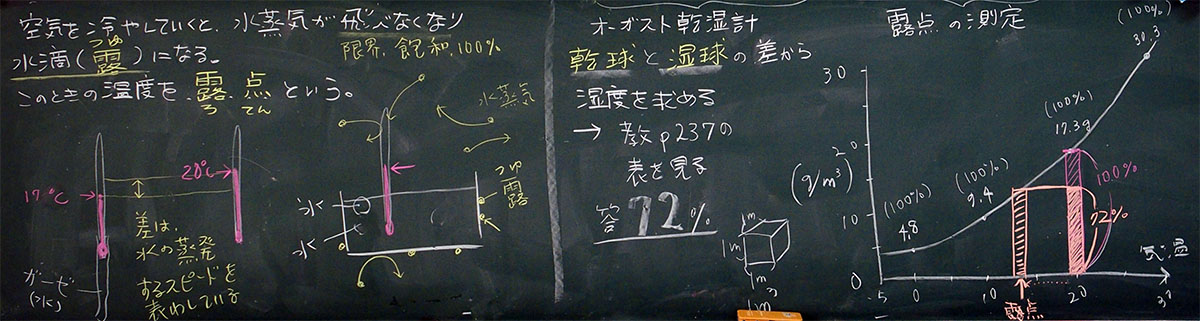 空気を冷やしていくと、水蒸気が飛べなくなり
限界、飽和、100%
つゆ
水滴(露)になる。
このときの温度を、露点という。
ろ てん
17℃
20℃
差は、
水の蒸発
するスピードを
表わしている
ガーゼ
(水)
水蒸気
氷
水
つゆ
露
オーガスト乾湿計
乾球と湿球の差から
湿度を求める
→ 教p237の
表を見る
答 72%
1m
1m
1m
1m³
露点の測定
(g/m³)
30
20
10
0
(100%)
4.8
(100%)
9.4
(100%)
17.3g
(100%)
30.3
100%
72%
気温
-5
0
10
20
30
露点